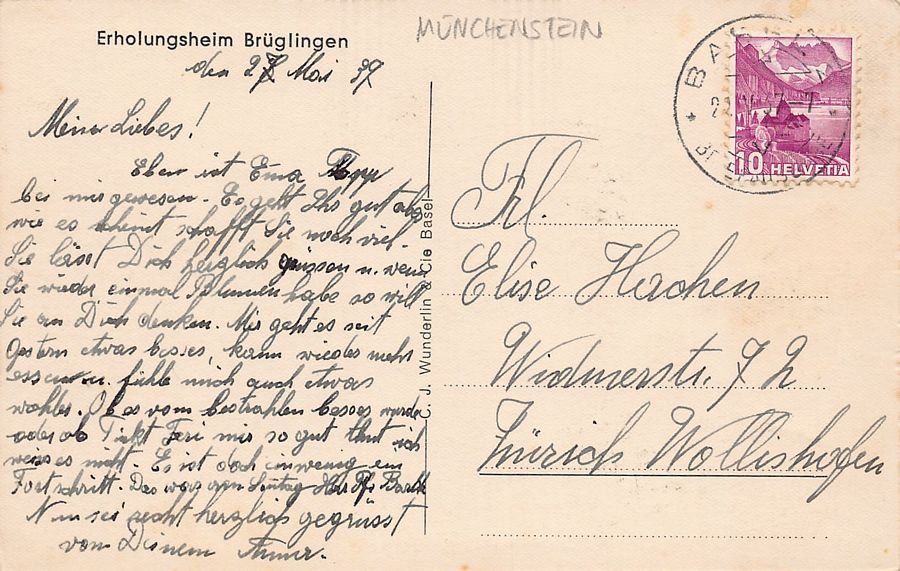 Erholungsheim Brüglingen
MÜNCHENSTEIN
den 27 Mai 37
Meine Liebes!
Eben ist Ema
bei mir gewesen. Es geht Ihr gut als
wie es scheint schafft Sie noch viel.
Sie lässt Dich herzlich grüssen u. wenn
Sie wieder einmal Blumen habe so will
Sie an Dich denken. Mir geht es seit
Gestern etwas besser, kann wieder mehr
essen u. fühle mich auch etwas
wohler. Ob es vom bestrahlen besser wurde
oder ob mir so gut thut ich
weiss es nicht. Es ist doch ein wenig ein
Fortschritt. Das war am Herr Pf.
Nun sei recht herzlich gegrüsst
von Deinem
C. J. Wunderlin & Cie Basel
BAS
10 HELVETIA
Frl.
Elise Hachen
Widmerstr. 72
Zürich Wollishofen